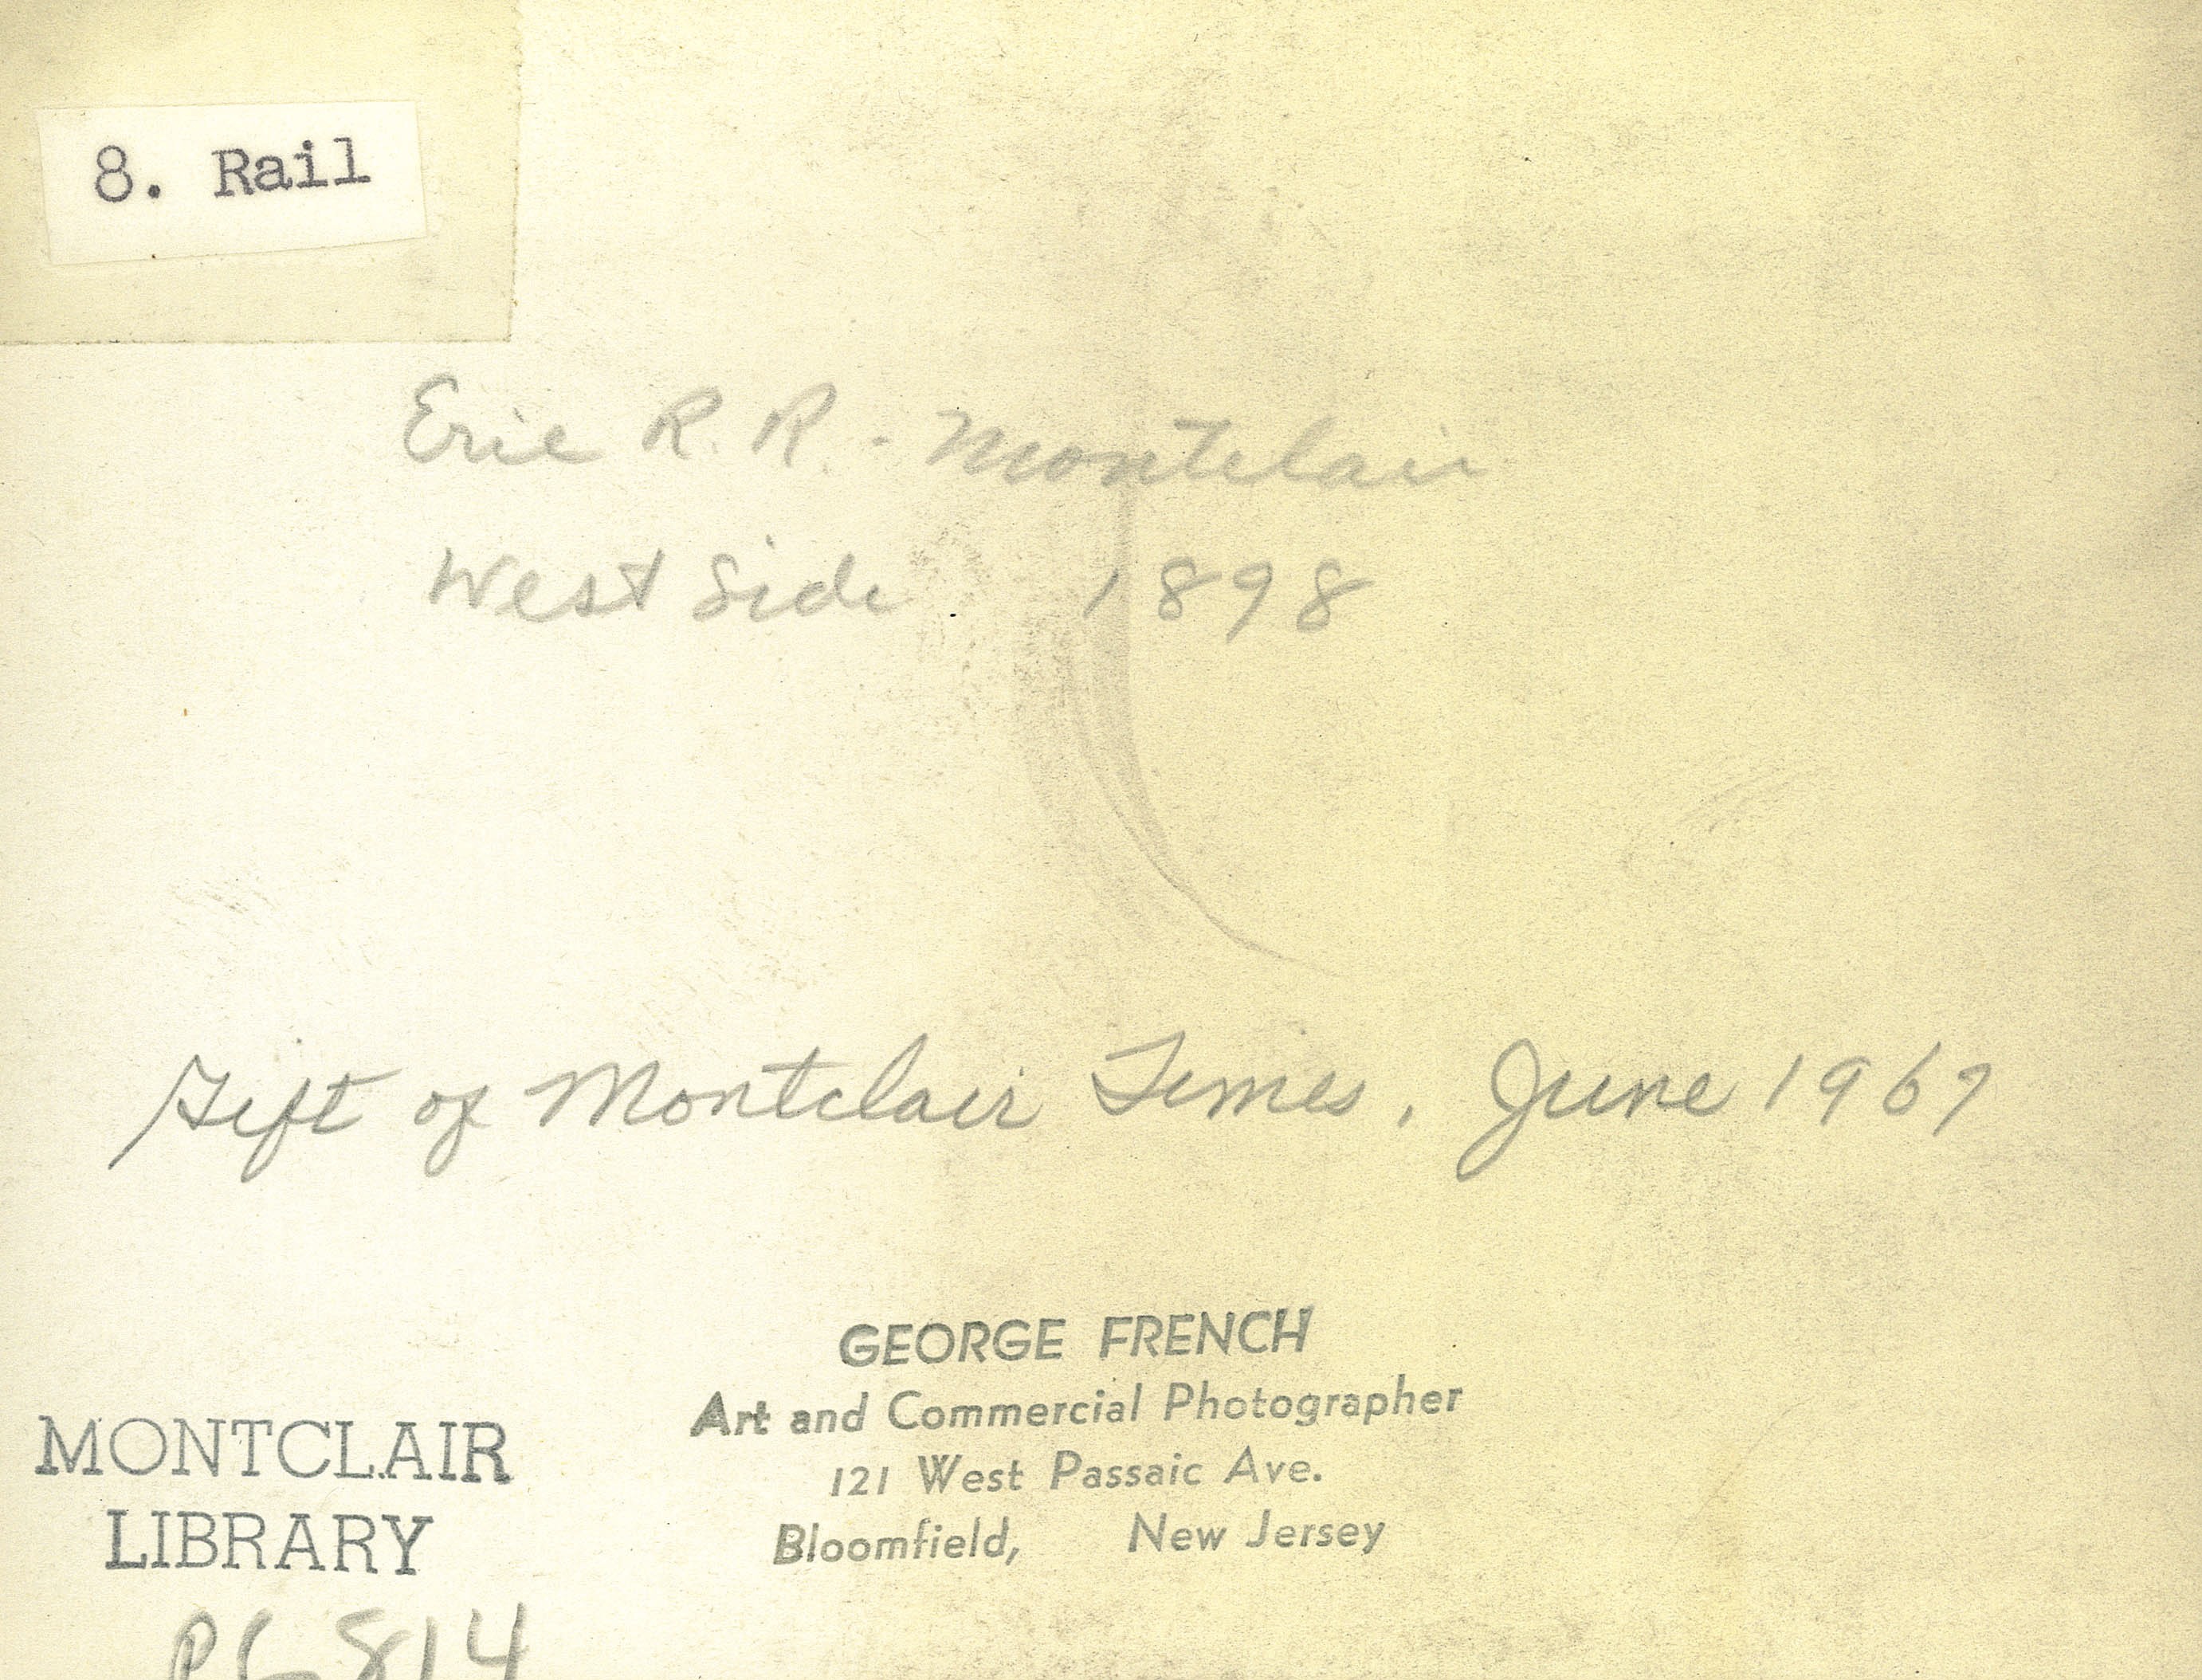 8. Rail
Erie R.R. - Montclair
West Side 1898
Gift of Montclair Times, June 1967
GEORGE FRENCH
Art and Commercial Photographer
121 West Passaic Ave.
Bloomfield, New Jersey
MONTCLAIR
LIBRARY
814